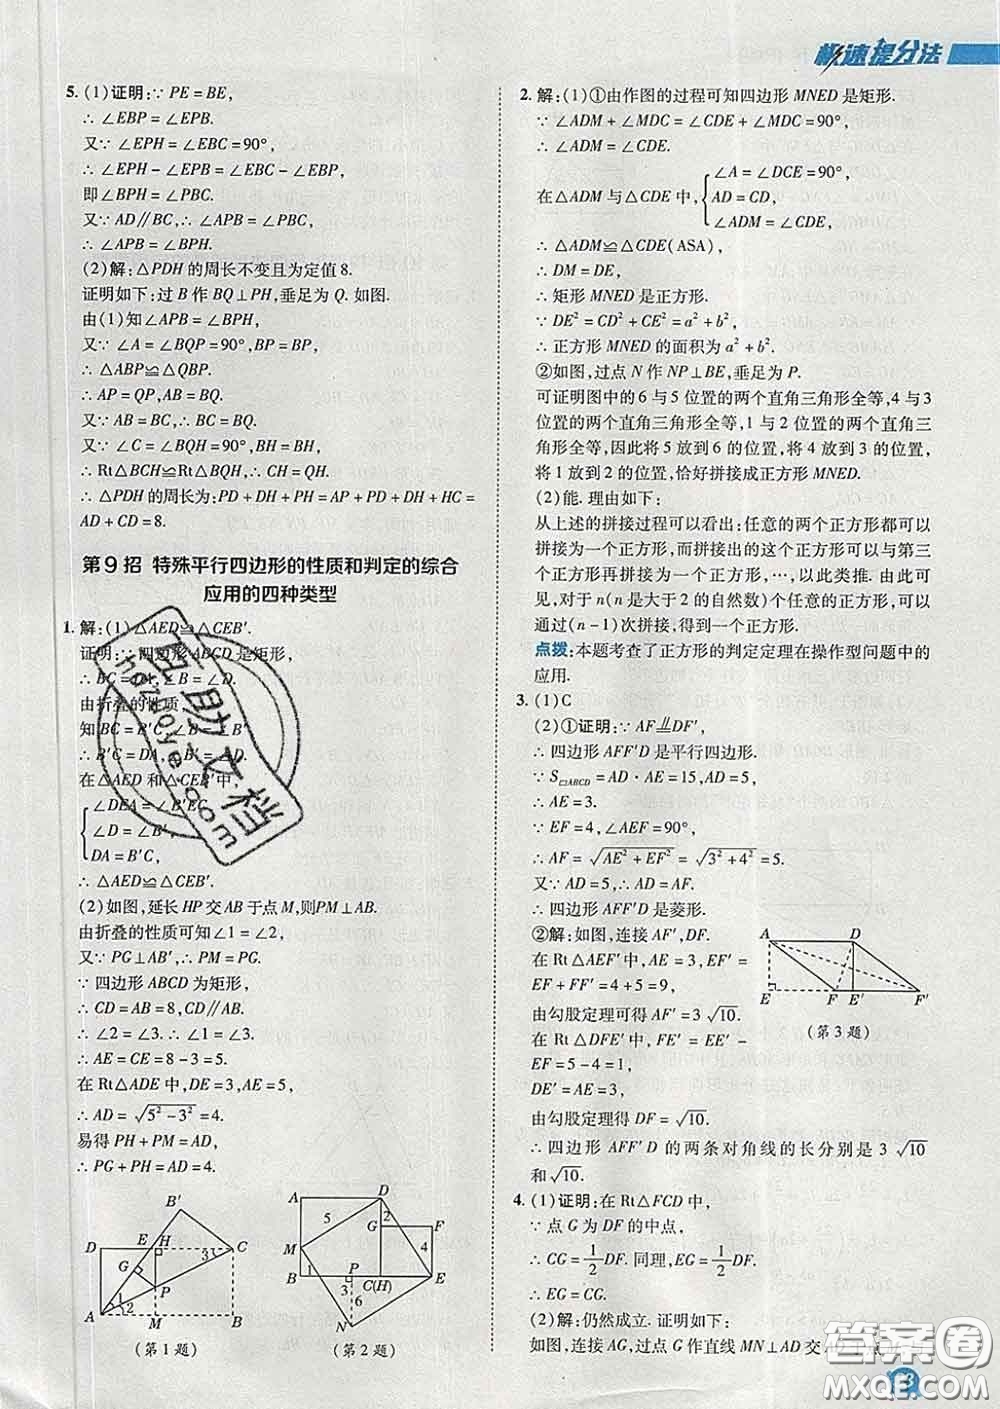 极速提分法
5. (1)证明:∵ PE = BE,
∴ ∠EBP = ∠EPB.
又∵ ∠EPH = ∠EBC = 90°,
∴ ∠EPH - ∠EPB = ∠EBC - ∠EBP,
即∠BPH = ∠PBC.
又∵ AD∥BC,∴ ∠APB = ∠PBC,
∴ ∠APB = ∠BPH.
(2)解:△PDH 的周长不变且为定值 8.
证明如下:过 B 作 BQ⊥PH,垂足为 Q. 如图.
由(1)知∠APB = ∠BPH,
又∵ ∠A = ∠BQP = 90°,BP = BP,
∴ △ABP≌△QBP.
∴ AP = QP,AB = BQ.
又∵ AB = BC,∴ BC = BQ.
又∵ ∠C = ∠BQH = 90°,BH = BH,
∴ Rt△BCH≌Rt△BQH,∴ CH = QH.
∴ △PDH 的周长为:PD + DH + PH = AP + PD + DH + HC =
AD + CD = 8.
第 9 招 特殊平行四边形的性质和判定的综合
应用的四种类型
1. 解:(1)△AED≌△CEB′.
证明:∵ 四边形 ABCD 是矩形,
∴ BC = DA,∠B = ∠D.
由折叠的性质,
知 BC = B′C,∠B = ∠B′,
∴ B′C = DA,∠B′ = ∠D.
在△AED 和△CEB′中,
∠DEA = ∠B′EC,
∠D = ∠B′,
DA = B′C,
∴ △AED≌△CEB′.
(2)如图,延长 HP 交 AB 于点 M,则PM⊥AB.
由折叠的性质可知∠1 = ∠2,
又∵ PG⊥AB′,∴ PM = PG.
∵ 四边形 ABCD 为矩形,
∴ CD = AB = 8,CD∥AB,
∴ ∠2 = ∠3,∴ ∠1 = ∠3.
∴ AE = CE = 8 - 3 = 5.
在 Rt△ADE 中,DE = 3,AE = 5,
∴ AD = √(5² - 3²) = 4.
易得 PH + PM = AD,
∴ PG + PH = AD = 4.
B′
D E H C
3
G
P
1
2
A M B
(第 1 题)
A D
5 2
G F
M 4
1 P
B C(H) E
3
6
N
(第 2 题)
2. 解:(1)①由作图的过程可知四边形 MNED 是矩形.
∵ ∠ADM + ∠MDC = ∠CDE + ∠MDC = 90°,
∴ ∠ADM = ∠CDE.
∠A = ∠DCE = 90°,
在△ADM 与△CDE 中, AD = CD,
∠ADM = ∠CDE,
∴ △ADM≌△CDE(ASA).
∴ DM = DE,
∴ 矩形 MNED 是正方形.
∵ DE² = CD² + CE² = a² + b²,
∴ 正方形 MNED 的面积为 a² + b².
②如图,过点 N 作 NP⊥BE,垂足为 P.
可证明图中的 6 与 5 位置的两个直角三角形全等,4 与 3
位置的两个直角三角形全等,1 与 2 位置的两个直角三角
形全等,因此将 5 放到 6 的位置,将 4 放到 3 的位置,
将 1 放到 2 的位置,恰好拼接成正方形 MNED.
(2)能. 理由如下:
从上述的拼接过程可以看出:任意的两个正方形都可以
拼接为一个正方形,而拼接出的这个正方形可以与第三
个正方形再拼接为一个正方形,…,以此类推. 由此可
见,对于 n(n 是大于 2 的自然数)个任意的正方形,可以
通过(n - 1)次拼接,得到一个正方形.
点拨:本题考查了正方形的判定定理在操作型问题中的
应用.
3. (1)C
(2)①证明:∵ AF⫽DF′,
∴ 四边形 AFF′D 是平行四边形.
∵ S▱ABCD = AD·AE = 15,AD = 5,
∴ AE = 3.
∵ EF = 4,∠AEF = 90°,
∴ AF = √(AE² + EF²) = √(3² + 4²) = 5.
又∵ AD = 5,∴ AD = AF.
∴ 四边形 AFF′D 是菱形.
②解:如图,连接 AF′,DF.
在 Rt△AEF′中,AE = 3,
EF + FF′ = 4 + 5 = 9,
由勾股定理可得 AF′ = 3√10.
在 Rt△DFE′中,FE′ = EE′ -
EF = 5 - 4 = 1,
DE′ = AE = 3,
由勾股定理得 DF = √10.
∴ 四边形 AFF′D 的两条对角线的长分别是 3√10
和√10.
A D
E F E′ F′
(第 3 题)
4. (1)证明:在 Rt△FCD 中,
∵ 点 G 为 DF 的中点,
∴ CG = 1/2 DF. 同理,EG = 1/2 DF.
∴ EG = CG.
(2)解:仍然成立. 证明如下:
如图,连接 AG,过点 G 作直线 MN⊥AD 交
3
答案圈
MXQE.COM
互助文档
huzhuye.com